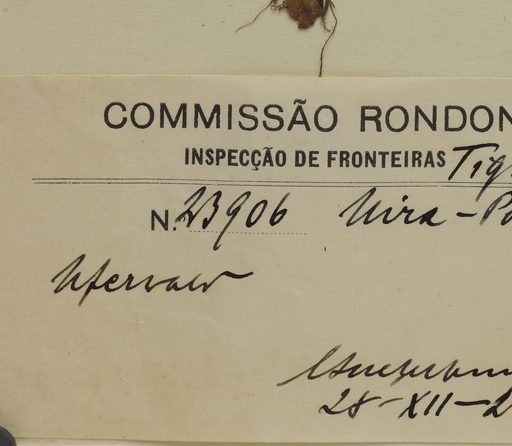 COMMISSÃO RONDON
INSPECÇÃO DE FRONTEIRAS Tig
N. 23906 Uira-Pa
Uferwald
28-XII-2